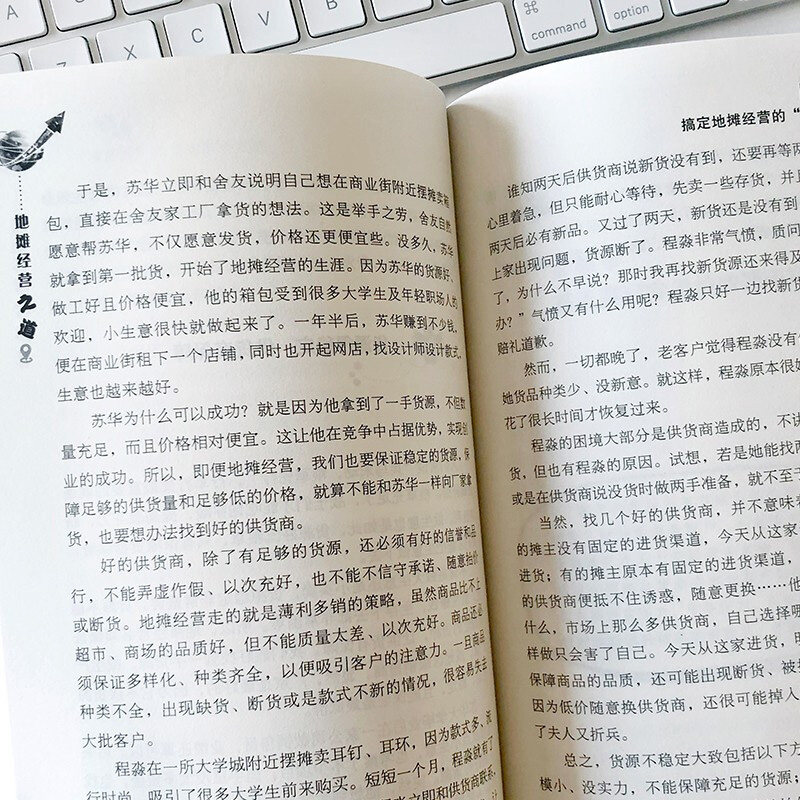 A
Z
X
C
V
B
N
M
⌘
command
option
地摊经营之道
于是，苏华立即和舍友说明自己想在商业街附近摆摊卖箱
包，直接在舍友家工厂拿货的想法。这是举手之劳，舍友自然
愿意帮苏华，不仅愿意发货，价格还更便宜些。没多久，苏华
就拿到第一批货，开始了地摊经营的生涯。因为苏华的货源好、
做工好且价格便宜，他的箱包受到很多大学生及年轻职场人的
欢迎，小生意很快就做起来了。一年半后，苏华赚到不少钱，
便在商业街租下一个店铺，同时也开起网店，找设计师设计款式，
生意也越来越好。
苏华为什么可以成功？就是因为他拿到了一手货源，不但数
量充足，而且价格相对便宜。这让他在竞争中占据优势，实现创
业的成功。所以，即便地摊经营，我们也要保证稳定的货源，保
障足够的供货量和足够低的价格，就算不能和苏华一样向厂家拿
货，也要想办法找到好的供货商。
好的供货商，除了有足够的货源，还必须有好的信誉和品
行，不能弄虚作假、以次充好，也不能不信守承诺、随意抬价
或断货。地摊经营走的就是薄利多销的策略，虽然商品比不上
超市、商场的品质好，但不能质量太差、以次充好。商品还必
须保证多样化、种类齐全，以便吸引客户的注意力。一旦商品
种类不全，出现缺货、断货或是款式不新的情况，很容易失去
大批客户。
程淼在一所大学城附近摆摊卖耳钉、耳环，因为款式多、流
行时尚，吸引了很多大学生前来购买。短短一个月，程淼就有了
立即和供货商联系，
搞定地摊经营的“
谁知两天后供货商说新货没有到，还要再等两
心里着急，但只能耐心等待，先卖一些存货，并且
两天后必有新品。又过了两天，新货还是没有到
上家出现问题，货源断了。程淼非常气愤，质问
了，为什么不早说？那时我再找新货源还来得及
办？”气愤又有什么用呢？程淼只好一边找新货
赔礼道歉。
然而，一切都晚了，老客户觉得程淼没有
她货品种类少、没新意。就这样，程淼原本很好
花了很长时间才恢复过来。
程淼的困境大部分是供货商造成的，不讲
货，但也有程淼的原因。试想，若是她能找两
或是在供货商说没货时做两手准备，就不至于
当然，找几个好的供货商，并不意味着
的摊主没有固定的进货渠道，今天从这家
进货；有的摊主原本有固定的进货渠道，
的供货商便抵不住诱惑，随意更换……他
什么，市场上那么多供货商，自己选择哪
样做只会害了自己。今天从这家进货，明
保障商品的品质，还可能出现断货、被
因为低价随意换供货商，还很可能掉入
了夫人又折兵。
总之，货源不稳定大致包括以下方
模小、没实力，不能保障充足的货源；